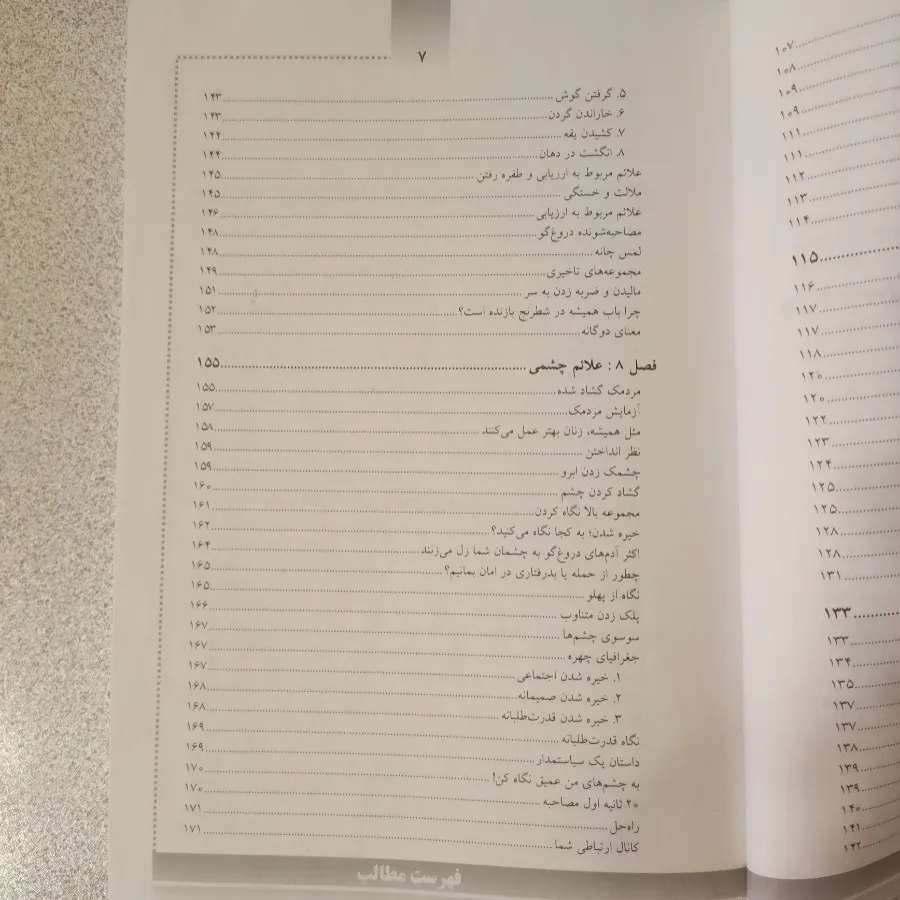 ۷
۵. گرفتن گوش ........ ۱۴۳
۶. خاراندن گردن ........ ۱۴۳
۷. کشیدن یقه ........ ۱۴۴
۸. انگشت در دهان ........ ۱۴۴
علائم مربوط به ارزیابی و طفره رفتن ........ ۱۴۵
ملالت و خستگی ........ ۱۴۵
علائم مربوط به ارزیابی ........ ۱۴۶
مصاحبه‌شونده دروغ‌گو ........ ۱۴۸
لمس چانه ........ ۱۴۸
مجموعه‌های تاخیری ........ ۱۴۹
مالیدن و ضربه زدن به سر ........ ۱۵۱
چرا باب همیشه در شطرنج بازنده است؟ ........ ۱۵۲
معنای دوگانه ........ ۱۵۳
فصل ۸ : علائم چشمی ........ ۱۵۵
مردمک گشاد شده ........ ۱۵۵
آزمایش مردمک ........ ۱۵۷
مثل همیشه، زنان بهتر عمل می‌کنند ........ ۱۵۸
نظر انداختن ........ ۱۵۹
چشمک زدن ابرو ........ ۱۵۹
گشاد کردن چشم ........ ۱۶۰
مجموعه بالا نگاه کردن ........ ۱۶۱
خیره شدن؛ به کجا نگاه می‌کنید؟ ........ ۱۶۲
اکثر آدم‌های دروغ‌گو به چشمان شما زل می‌زنند ........ ۱۶۴
چطور از حمله یا بدرفتاری در امان بمانیم؟ ........ ۱۶۵
نگاه از پهلو ........ ۱۶۵
پلک زدن متناوب ........ ۱۶۶
سوسوی چشم‌ها ........ ۱۶۷
جغرافیای چهره ........ ۱۶۷
۱. خیره شدن اجتماعی ........ ۱۶۷
۲. خیره شدن صمیمانه ........ ۱۶۸
۳. خیره شدن قدرت‌طلبانه ........ ۱۶۸
نگاه قدرت‌طلبانه ........ ۱۶۹
داستان یک سیاستمدار ........ ۱۶۹
به چشم‌های من عمیق نگاه کن! ........ ۱۷۰
۲۰ ثانیه اول مصاحبه ........ ۱۷۰
راه‌حل ........ ۱۷۱
کانال ارتباطی شما ........ ۱۷۱
فهرست مطالب
۱۰۷
۱۰۸
۱۰۹
۱۰۹
۱۱۱
۱۱۱
۱۱۲
۱۱۳
۱۱۴
۱۱۵
۱۱۶
۱۱۷
۱۱۷
۱۱۸
۱۲۰
۱۲۰
۱۲۲
۱۲۳
۱۲۴
۱۲۵
۱۲۵
۱۲۸
۱۲۸
۱۳۱
۱۳۳
۱۳۳
۱۳۴
۱۳۵
۱۳۷
۱۳۷
۱۳۸
۱۳۹
۱۳۹
۱۴۰
۱۴۱
۱۴۲